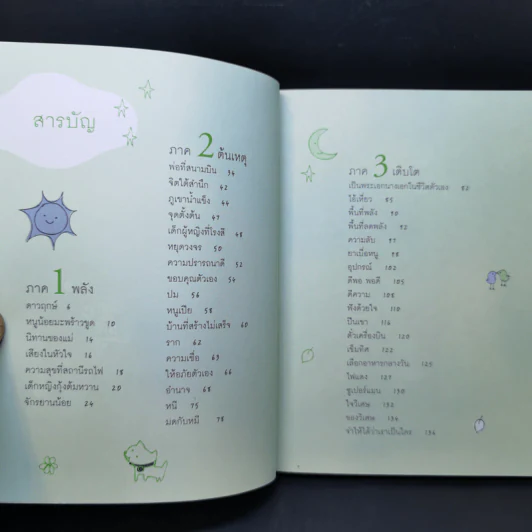 สารบัญ
ภาค 1 พลัง
ดาวฤกษ์ 6
หนูน้อยมะพร้าวขูด 10
นิทานของแม่ 14
เสียงในหัวใจ 16
ความสุขที่สถานีรถไฟ 18
เด็กหญิงกุ้งต้มหวาน 20
จักรยานน้อย 24
ภาค 2 ต้นเหตุ
พ่อที่สนามบิน 34
จิตใต้สำนึก 42
ภูเขาน้ำแข็ง 44
จุดตั้งต้น 47
เด็กผู้หญิงที่ไรงดี 48
หยุดวงจร 50
ความปรารถนาดี 52
ขอบคุณตัวเอง 54
ปม 56
หนูเปีย 58
บ้านที่สร้างไม่เสร็จ 60
ราก 62
ความเชื่อ 63
ให้อภัยตัวเอง 66
อำนาจ 68
หนี 75
มดกับหมี 78
ภาค 3 เติบโต
เป็นพระเอกนางเอกในชีวิตตัวเอง 83
ไอ้เหี่ยว 85
พื้นที่พลัง 90
พื้นที่ลดพลัง 92
ความลับ 97
ยาเบื่อหนู 98
อุปกรณ์ 102
ดีพอ พอดี 105
ตีความ 108
ฟังด้วยใจ 110
ปีนเขา 116
ตั๋วเครื่องบิน 120
เข็มทิศ 122
เลือกอาหารกลางวัน 125
ไฟแดง 127
ซูเปอร์แมน 130
ใจวิเศษ 132
ของวิเศษ 134